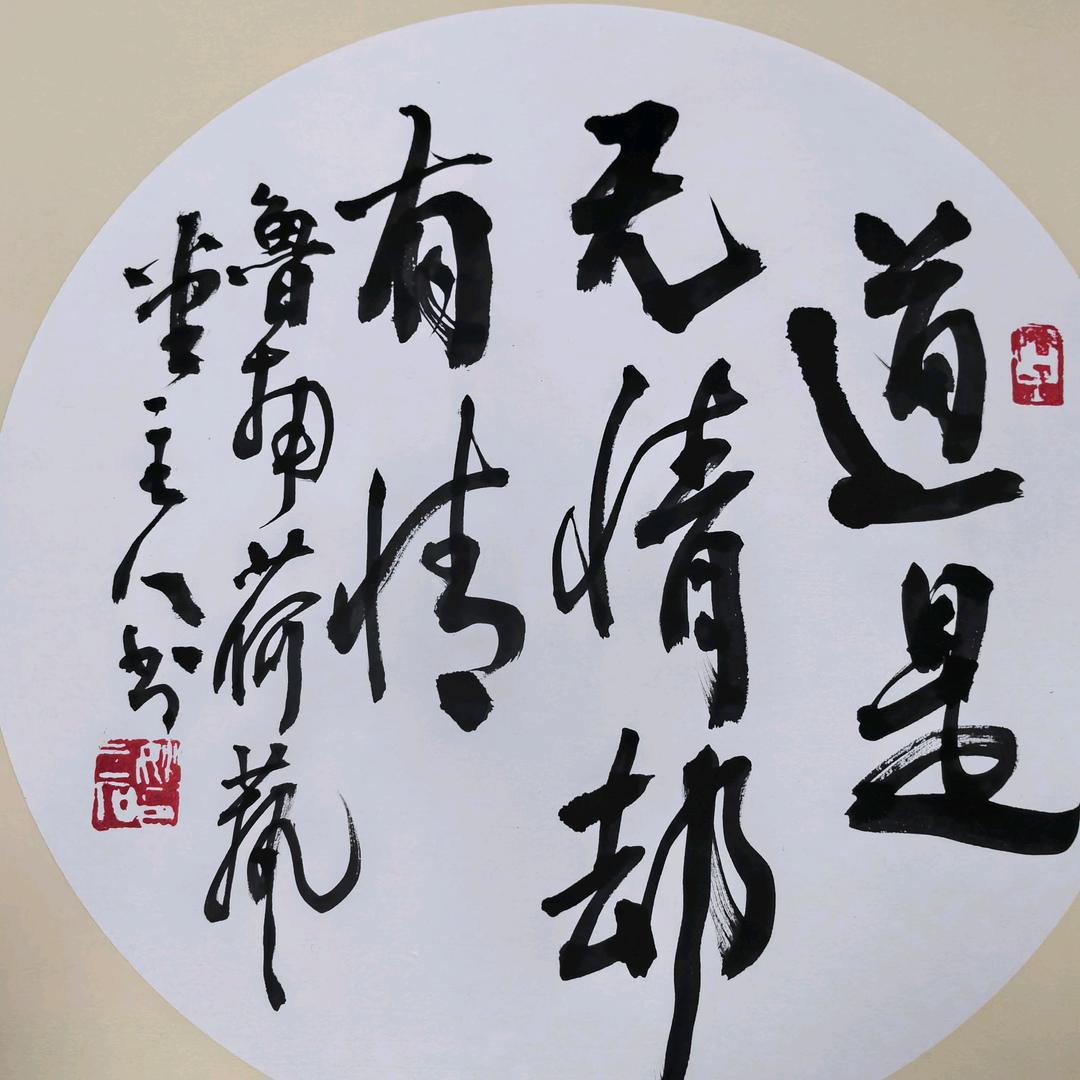 道是
无情却
有情
鲁南荷
堂主人书